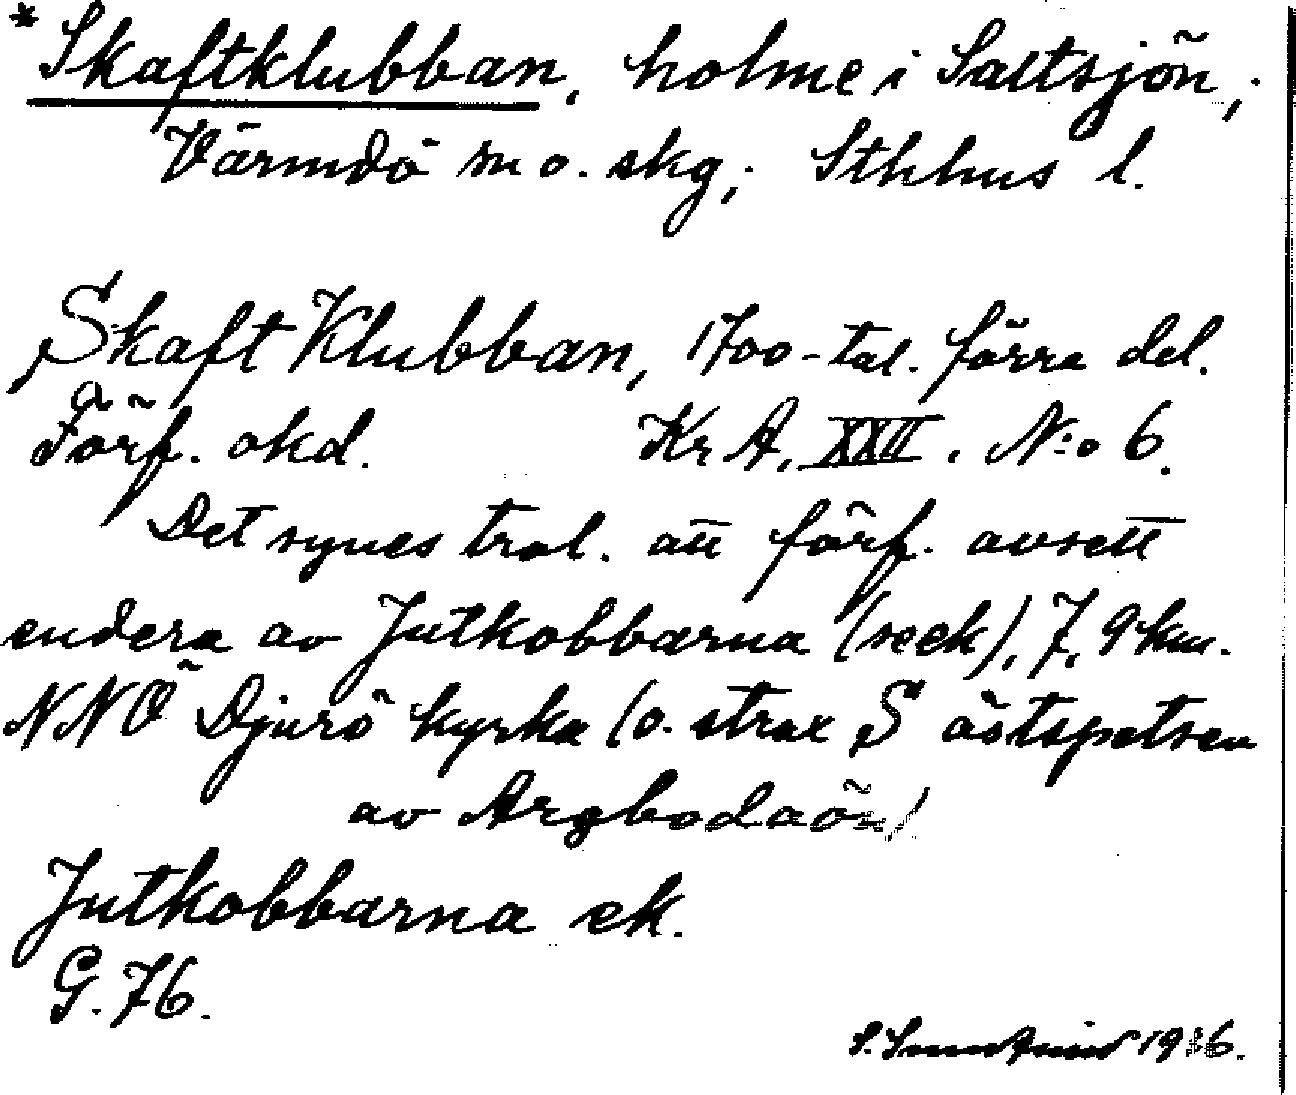 * Skaftklubban, holme i Saltsjön;
Värmdö sn o. skg; Sthlms l.
Skaft Klubban, 1700-tal. förra del.
Förf. okd. Kr A, XXII. N:o 6.
Det synes trol. att förf. avsett
endera av Jutkobbarna (seek), 7,9 km.
NNÖ Djurö kyrka (o. strax S östspetsen
av Argbodaön)
Jutkobbarna ek.
G. 76.
S. 1936.